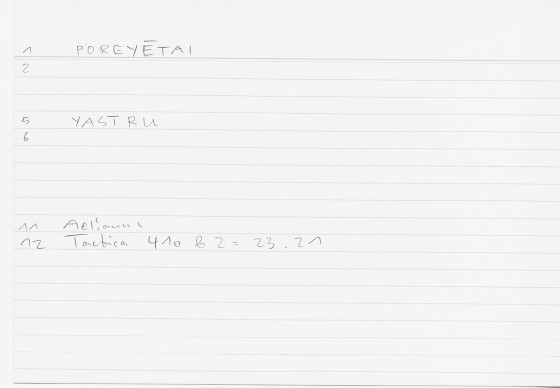 1 POREYĒTAI
2
5 YASTRU
6
11 Aelianus
12 Tactica 410 B 2 = 23.21